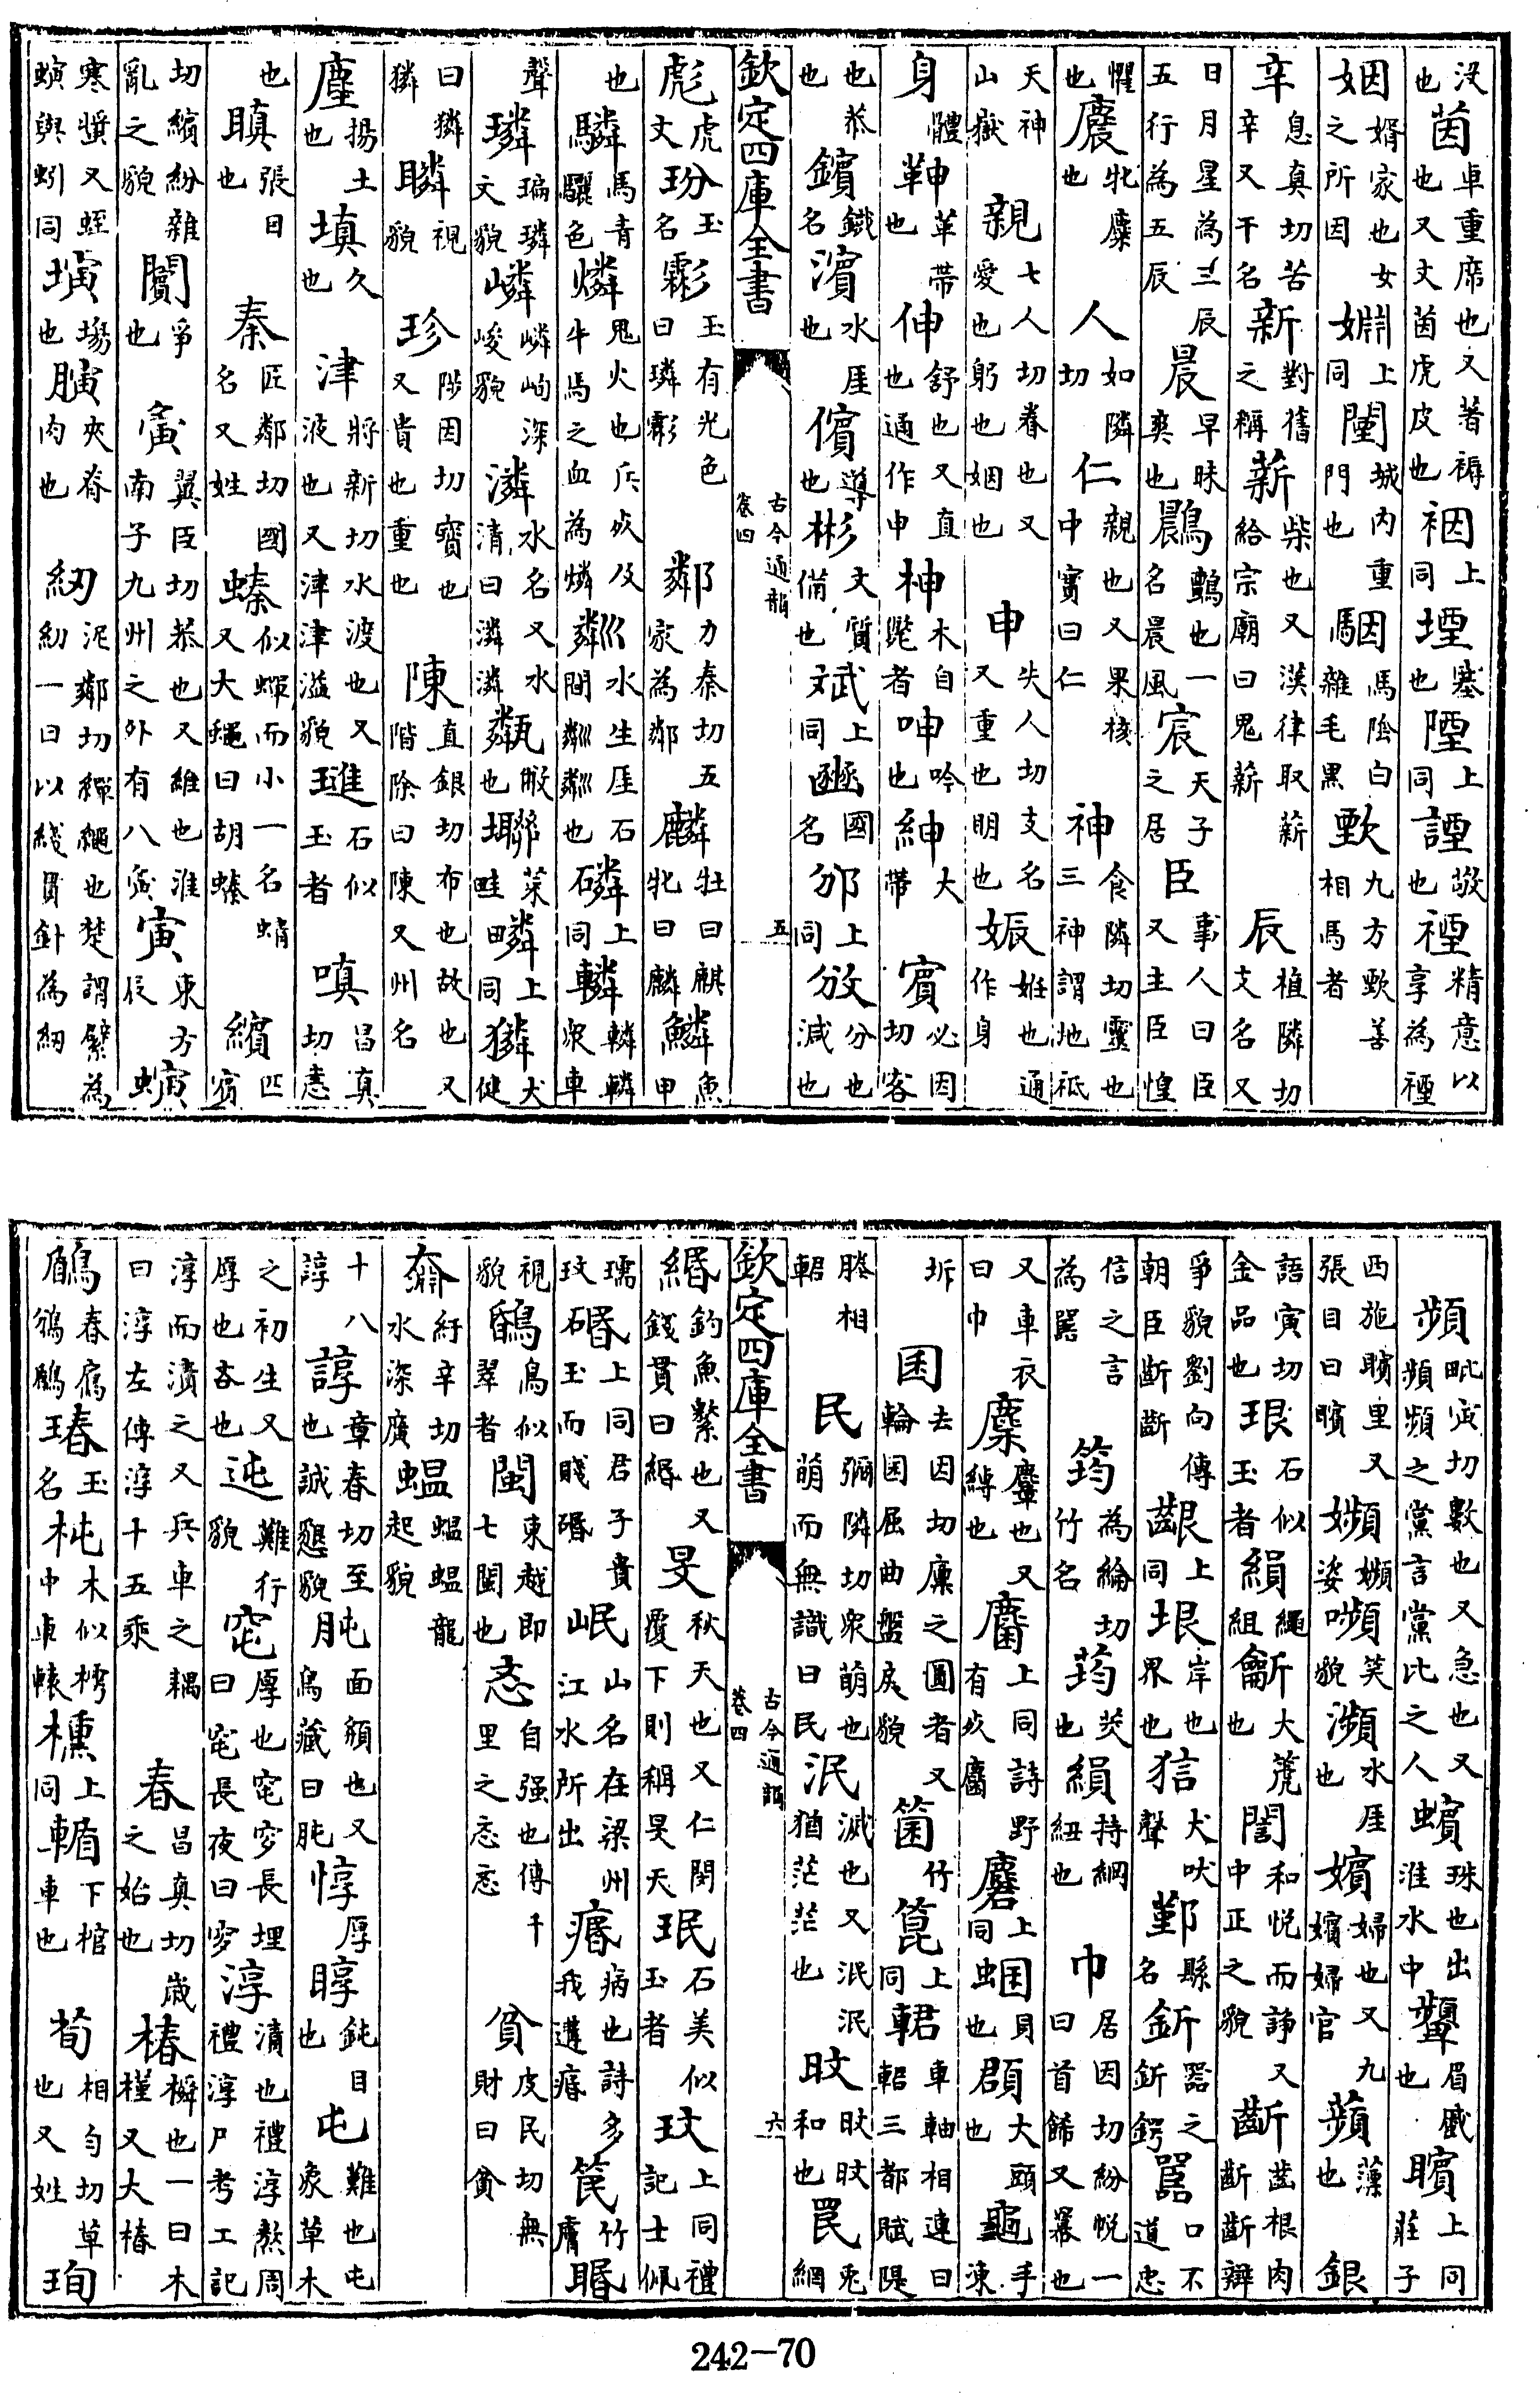 沒也茵車重席也又著褥也又文茵虎皮也裀上同堙塞也陻上同諲敬也禋精意以享為禋
姻婿家也女之所因婣上同闉城內重門也駰馬陰白雜毛黑歅九方歅善相馬者
辛息真切苦辛又干名新對舊之稱薪柴也又漢律取薪給宗廟曰鬼薪辰植隣切支名又
日月星為三辰五行為五辰晨早昧爽也鷐鸇也一名晨風宸天子之居臣事人曰臣又主臣惶
懼也麎牝麋也人如隣切仁親也又果核中實曰仁神食隣切靈也三神謂地祗
天神山嶽親七人切眷也又愛也躬也姻也申失人切支名又重也明也娠姙也通作身
身體革帶也伸舒也又直也通作申柛木自斃者呻吟也紳大帶賓必因切客
也恭也鑌鐵名濱水厓也儐導也彬文質備也斌上同豳國名邠上同攽分也減也
欽定四庫全書 古今通韻卷四 五
虨虎文玢玉名霦玉有光色曰璘霦鄰力秦切五家為鄰麟牡曰麒牝曰麟鱗魚甲
也驎馬青驪色燐鬼火也兵死及牛馬之血為燐粼水生厓石間粼粼也磷上同轔轔轔衆車
聲璘㻞璘文貌嶙嶙峋深峻貌潾水名又水清曰潾潾甐敝也壣菜畦疄上同獜犬健
曰獜獜瞵視貌珍陟因切寶也又貴也重也陳直銀切布也故也又階除曰陳又州名
塵揚土也填久也津將新切水渡也又液也又津津溢貌璡石似玉者嗔昌真切恚
也瞋張目也秦匠鄰切國名又姓螓似蟬而小一名蜻又大蠅曰胡螓繽匹賓
切繽紛雜亂之貌爭也夤翼臣切恭也又維也淮南子九州之外有八夤寅東方辰螾
寒螿又蚯螾與蚓同場也夾脊肉也紉泥鄰切繟繩也楚謂擘為紉一曰以綫貫針為紉
頻毗寅切數也又急也又頻頻之黨言黨比之人蠙珠也出淮水中顰眉蹙也矉上同莊子
西施矉里又張目曰矉姿嚬笑貌瀕水厓也嬪婦也又九嬪婦官蘋薸也銀
語寅切金品也珢石似玉者繩組大箎也誾和悅而諍又中正之貌齗齒根肉齗齗辯
爭貌劉向傳朝臣齗齗齦上同垠岸也界也狺犬吠聲鄞縣名釿器之釿鍔嚚口不道忠
信之言為嚚筠為綸切竹名荺茭也縜持綱紐也巾居因切紛帨一曰首飾又冪也
又車衣曰巾麇麞也又縛也麕上同詩野有死麕麏上同蜠貝也頵大頭也龜手凍
坼囷去因切廩之圓者又輪囷屈曲盤戾貌箘竹箟上同輑車軸相連曰輑三都賦隄
塍相輑民彌隣切衆萌也萌而無識曰民泯滅也又泯泯猶茫茫也旼旼旼和也罠兎網
欽定四庫全書 古今通韻卷四 六
緡釣魚繫也又錢貫曰緡旻秋天也又仁閔覆下則稱旻天珉石美似玉者玟上同禮記士佩
瓀玟碈上同君子貴玉而賤碈岷山名在梁州江水所出痻病也詩多我遘痻笢竹膚䁕
視貌鴖鳥似翠者閩東越即七閩也忞自强也傳千里之忞忞貧皮民切無財曰貧
奫紆辛切水深廣蝹蝹蝹龍起貌
十八諄諄章春切至也誠懇貌肫面頯也又鳥藏曰肫惇厚鈍目也屯難也屯象草木
之初生又厚也吝也迍難行貌窀厚也窀穸長埋曰窀長夜曰穸淳清也禮淳熬周禮淳尸考工記
淳而漬之又兵車之耦曰淳左傳淳十五乘春昌真切歲之始也椿橓也一曰木槿又大椿
鶞春鳸鳻鶞瑃玉名杶木似樗中車轅櫄上同輴下棺車也荀相勻切草也又姓珣
242-70